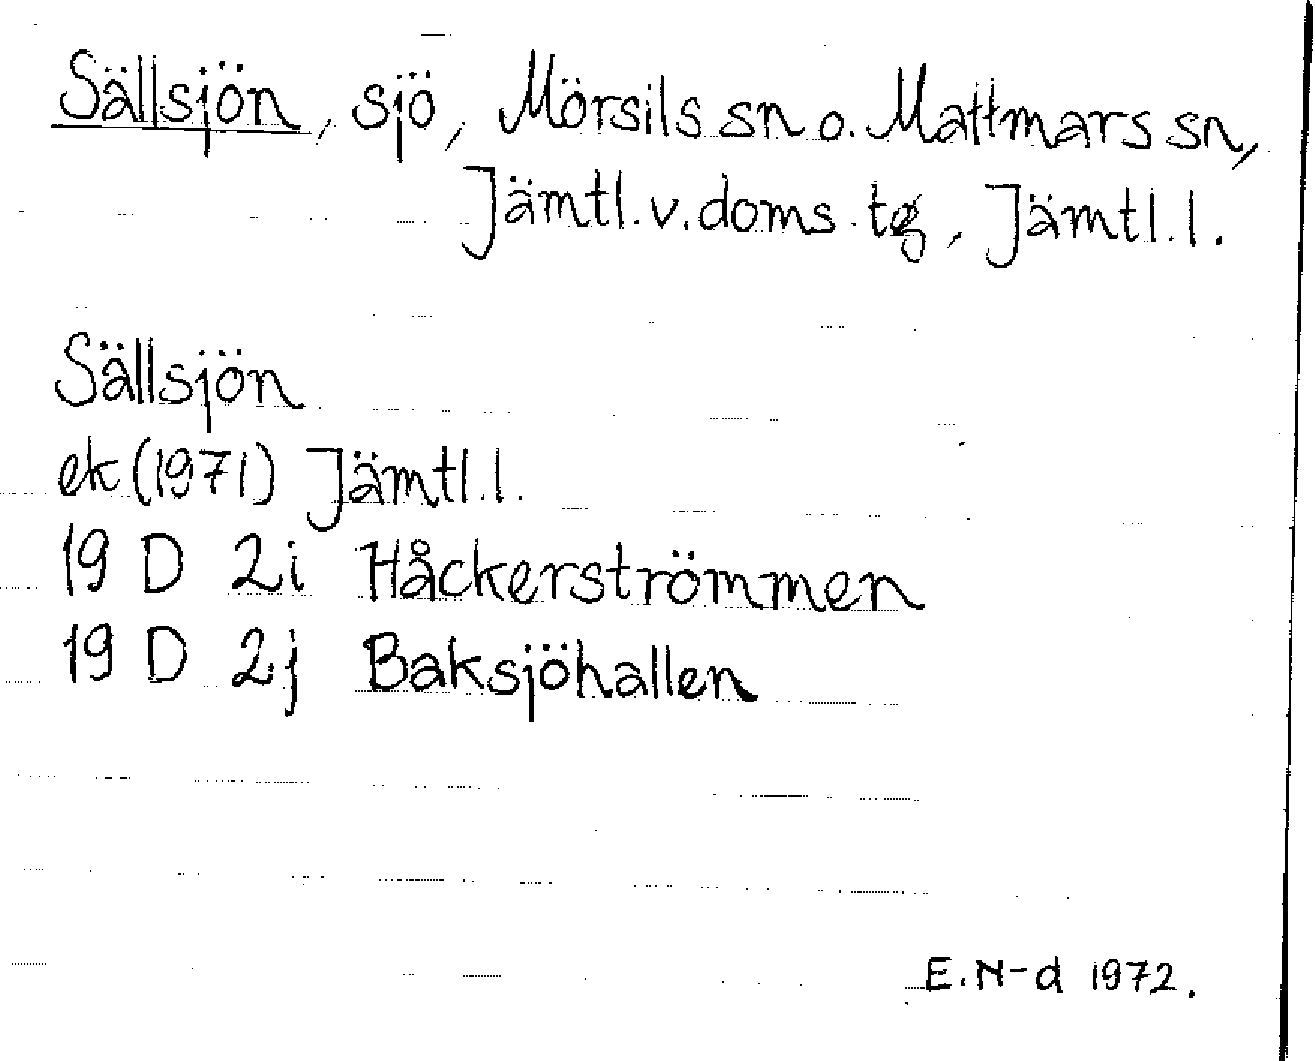 Sällsjön, sjö, Mörsils sn o. Mattmars sn,
Jämtl. v. doms. tg, Jämtl. l.
Sällsjön
ek (1971) Jämtl. l.
19 D 2i Håckerströmmen
19 D 2j Baksjöhallen
E. N-d 1972.